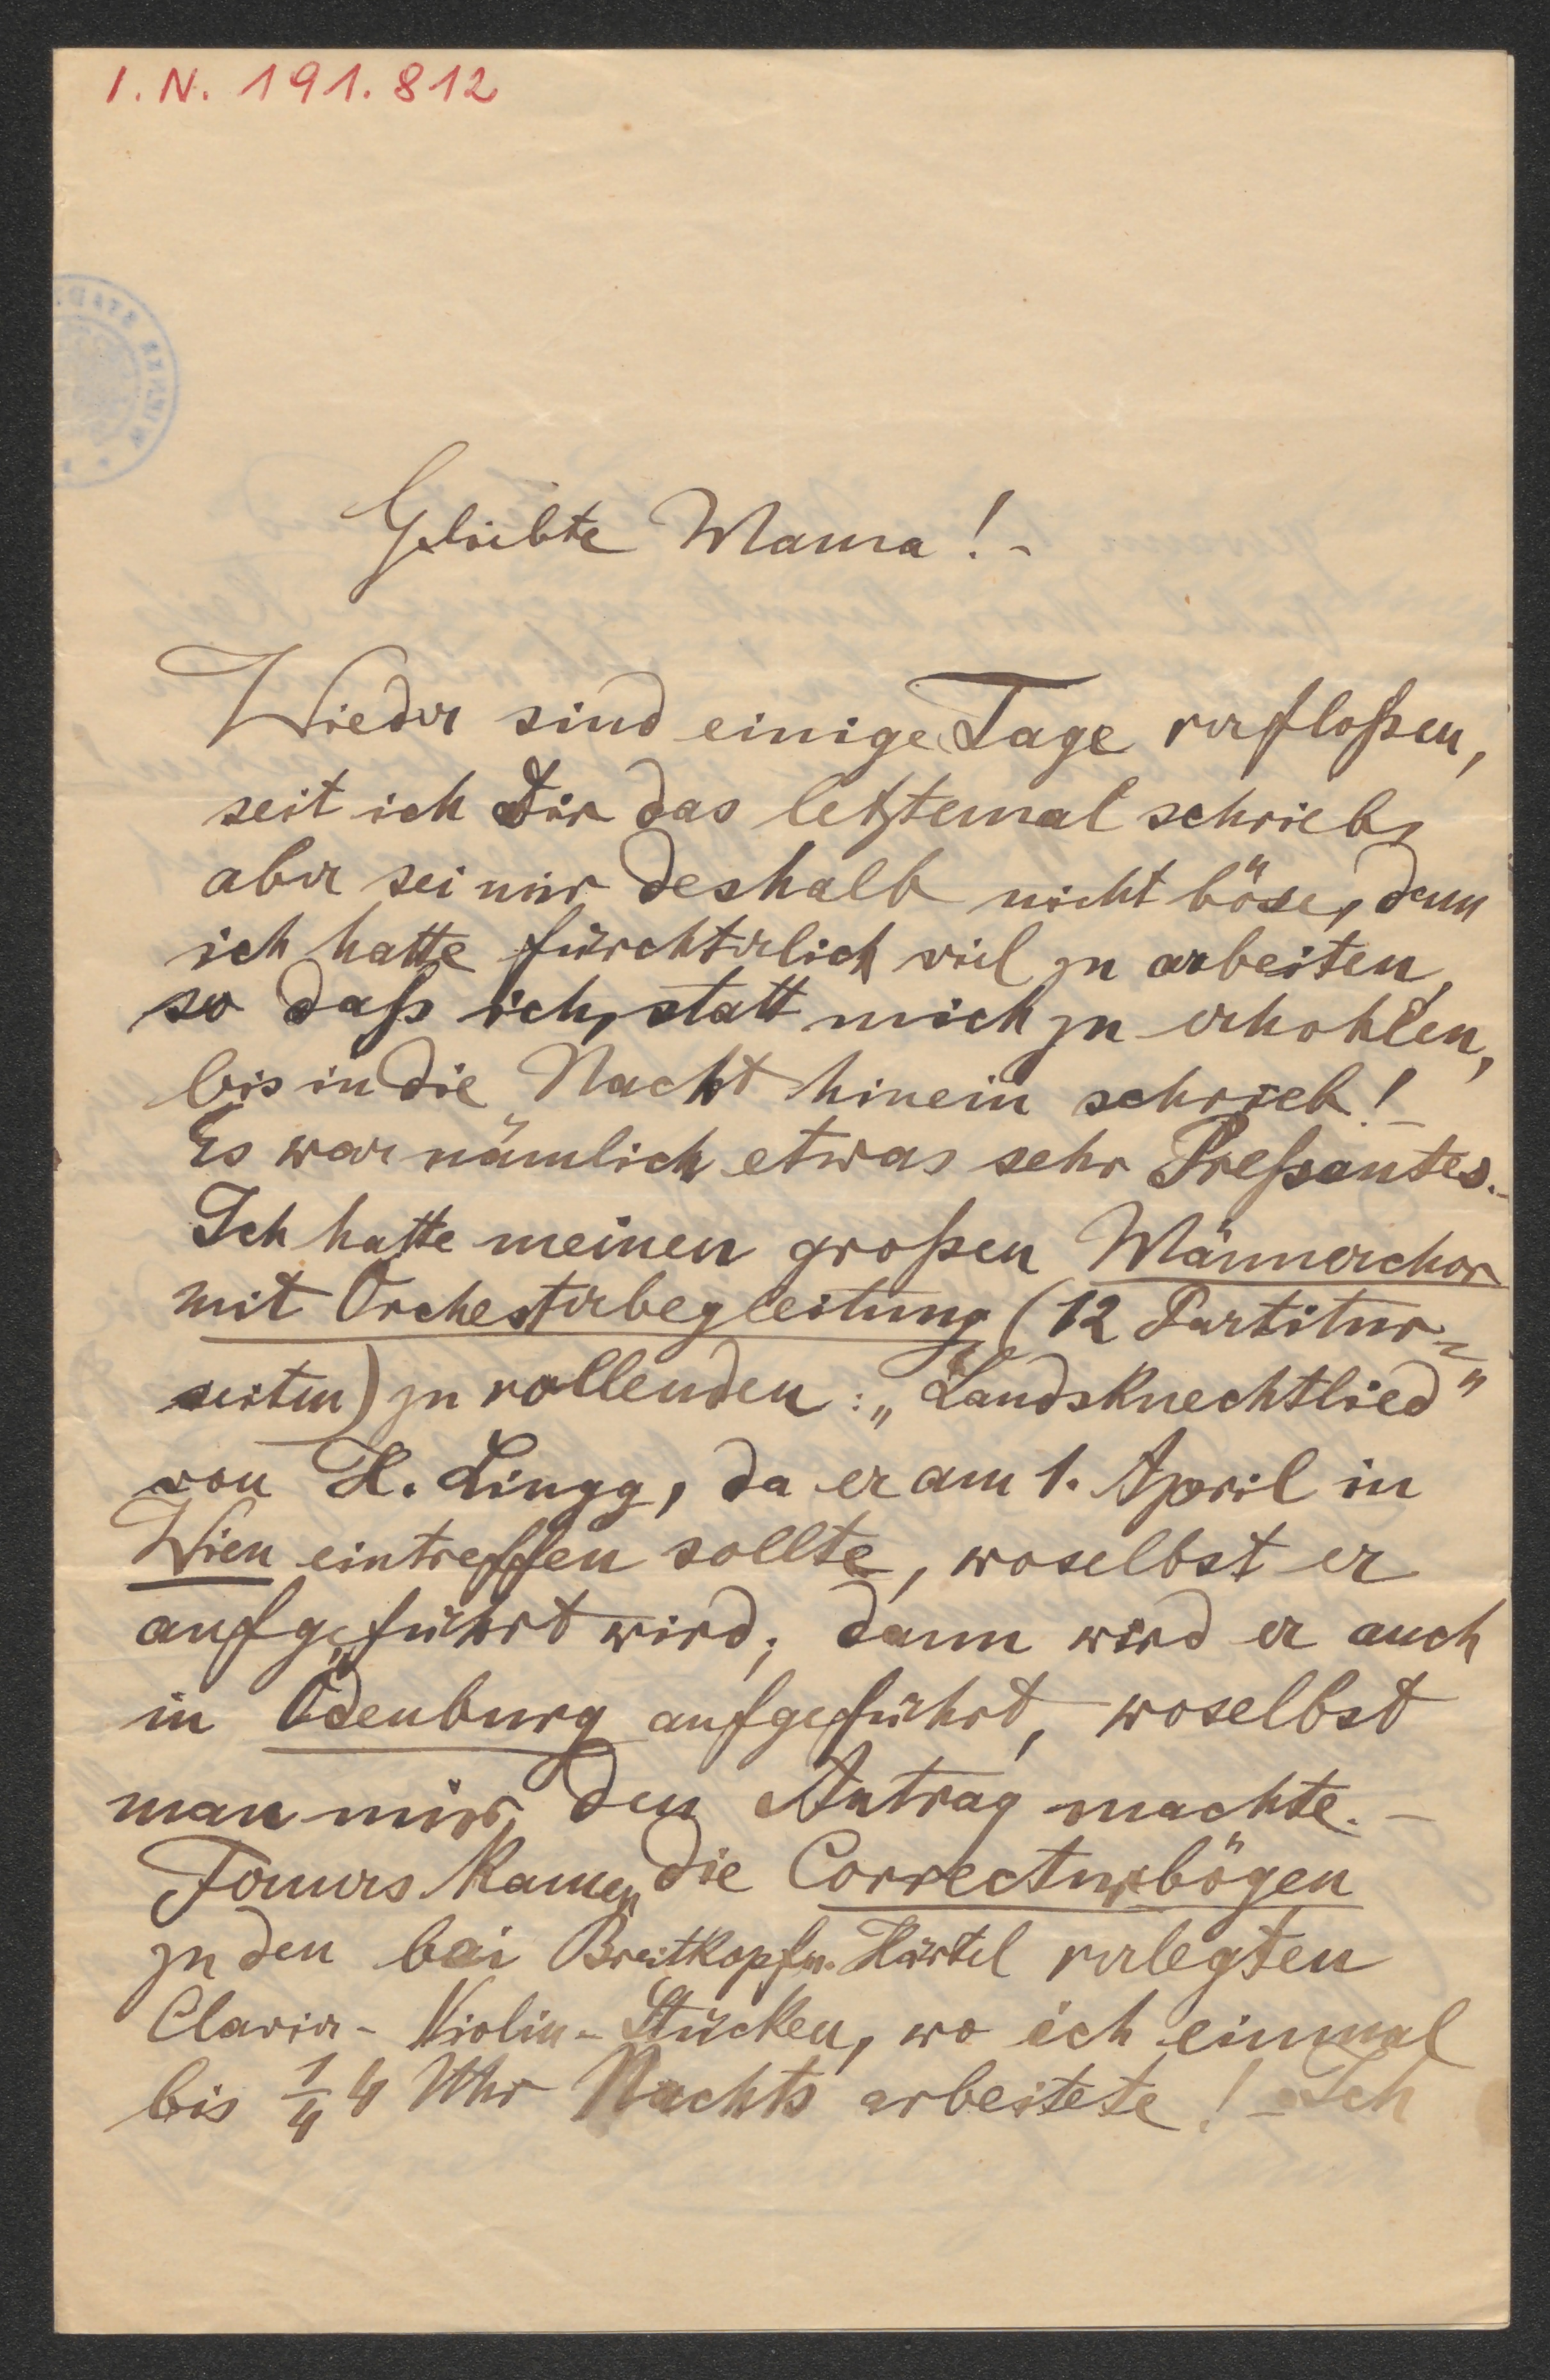 I. N. 191.812
Geliebte Mama! -
Wieder sind einige Tage verfloßen,
seit ich Dir das letztemal schrieb,
aber sei mir deshalb nicht böse, denn
ich hatte fürchterlich viel zu arbeiten,
so daß ich, statt mich zu erhohlen,
bis in die Nacht hinein schrieb! -
Es war nämlich etwas sehr Preßantes. -
Ich hatte meinen großen Männerchor
mit Orchesterbegleitung (12 Partitur-
seiten) zu vollenden: „Landsknechtlied"
von H. Lingg, da er am 1. April in
Wien eintreffen sollte, woselbst er
aufgeführt wird; dann wird er auch
in Ödenburg aufgeführt, woselbst
man mir den Antrag machte. -
Ferners kamen die Correcturbögen
zu den bei Breitkopf u. Härtel verlegten
Clavier- Violin- Stücken, wo ich einmal
bis 1/4 4 Uhr Nachts arbeitete! - Ich